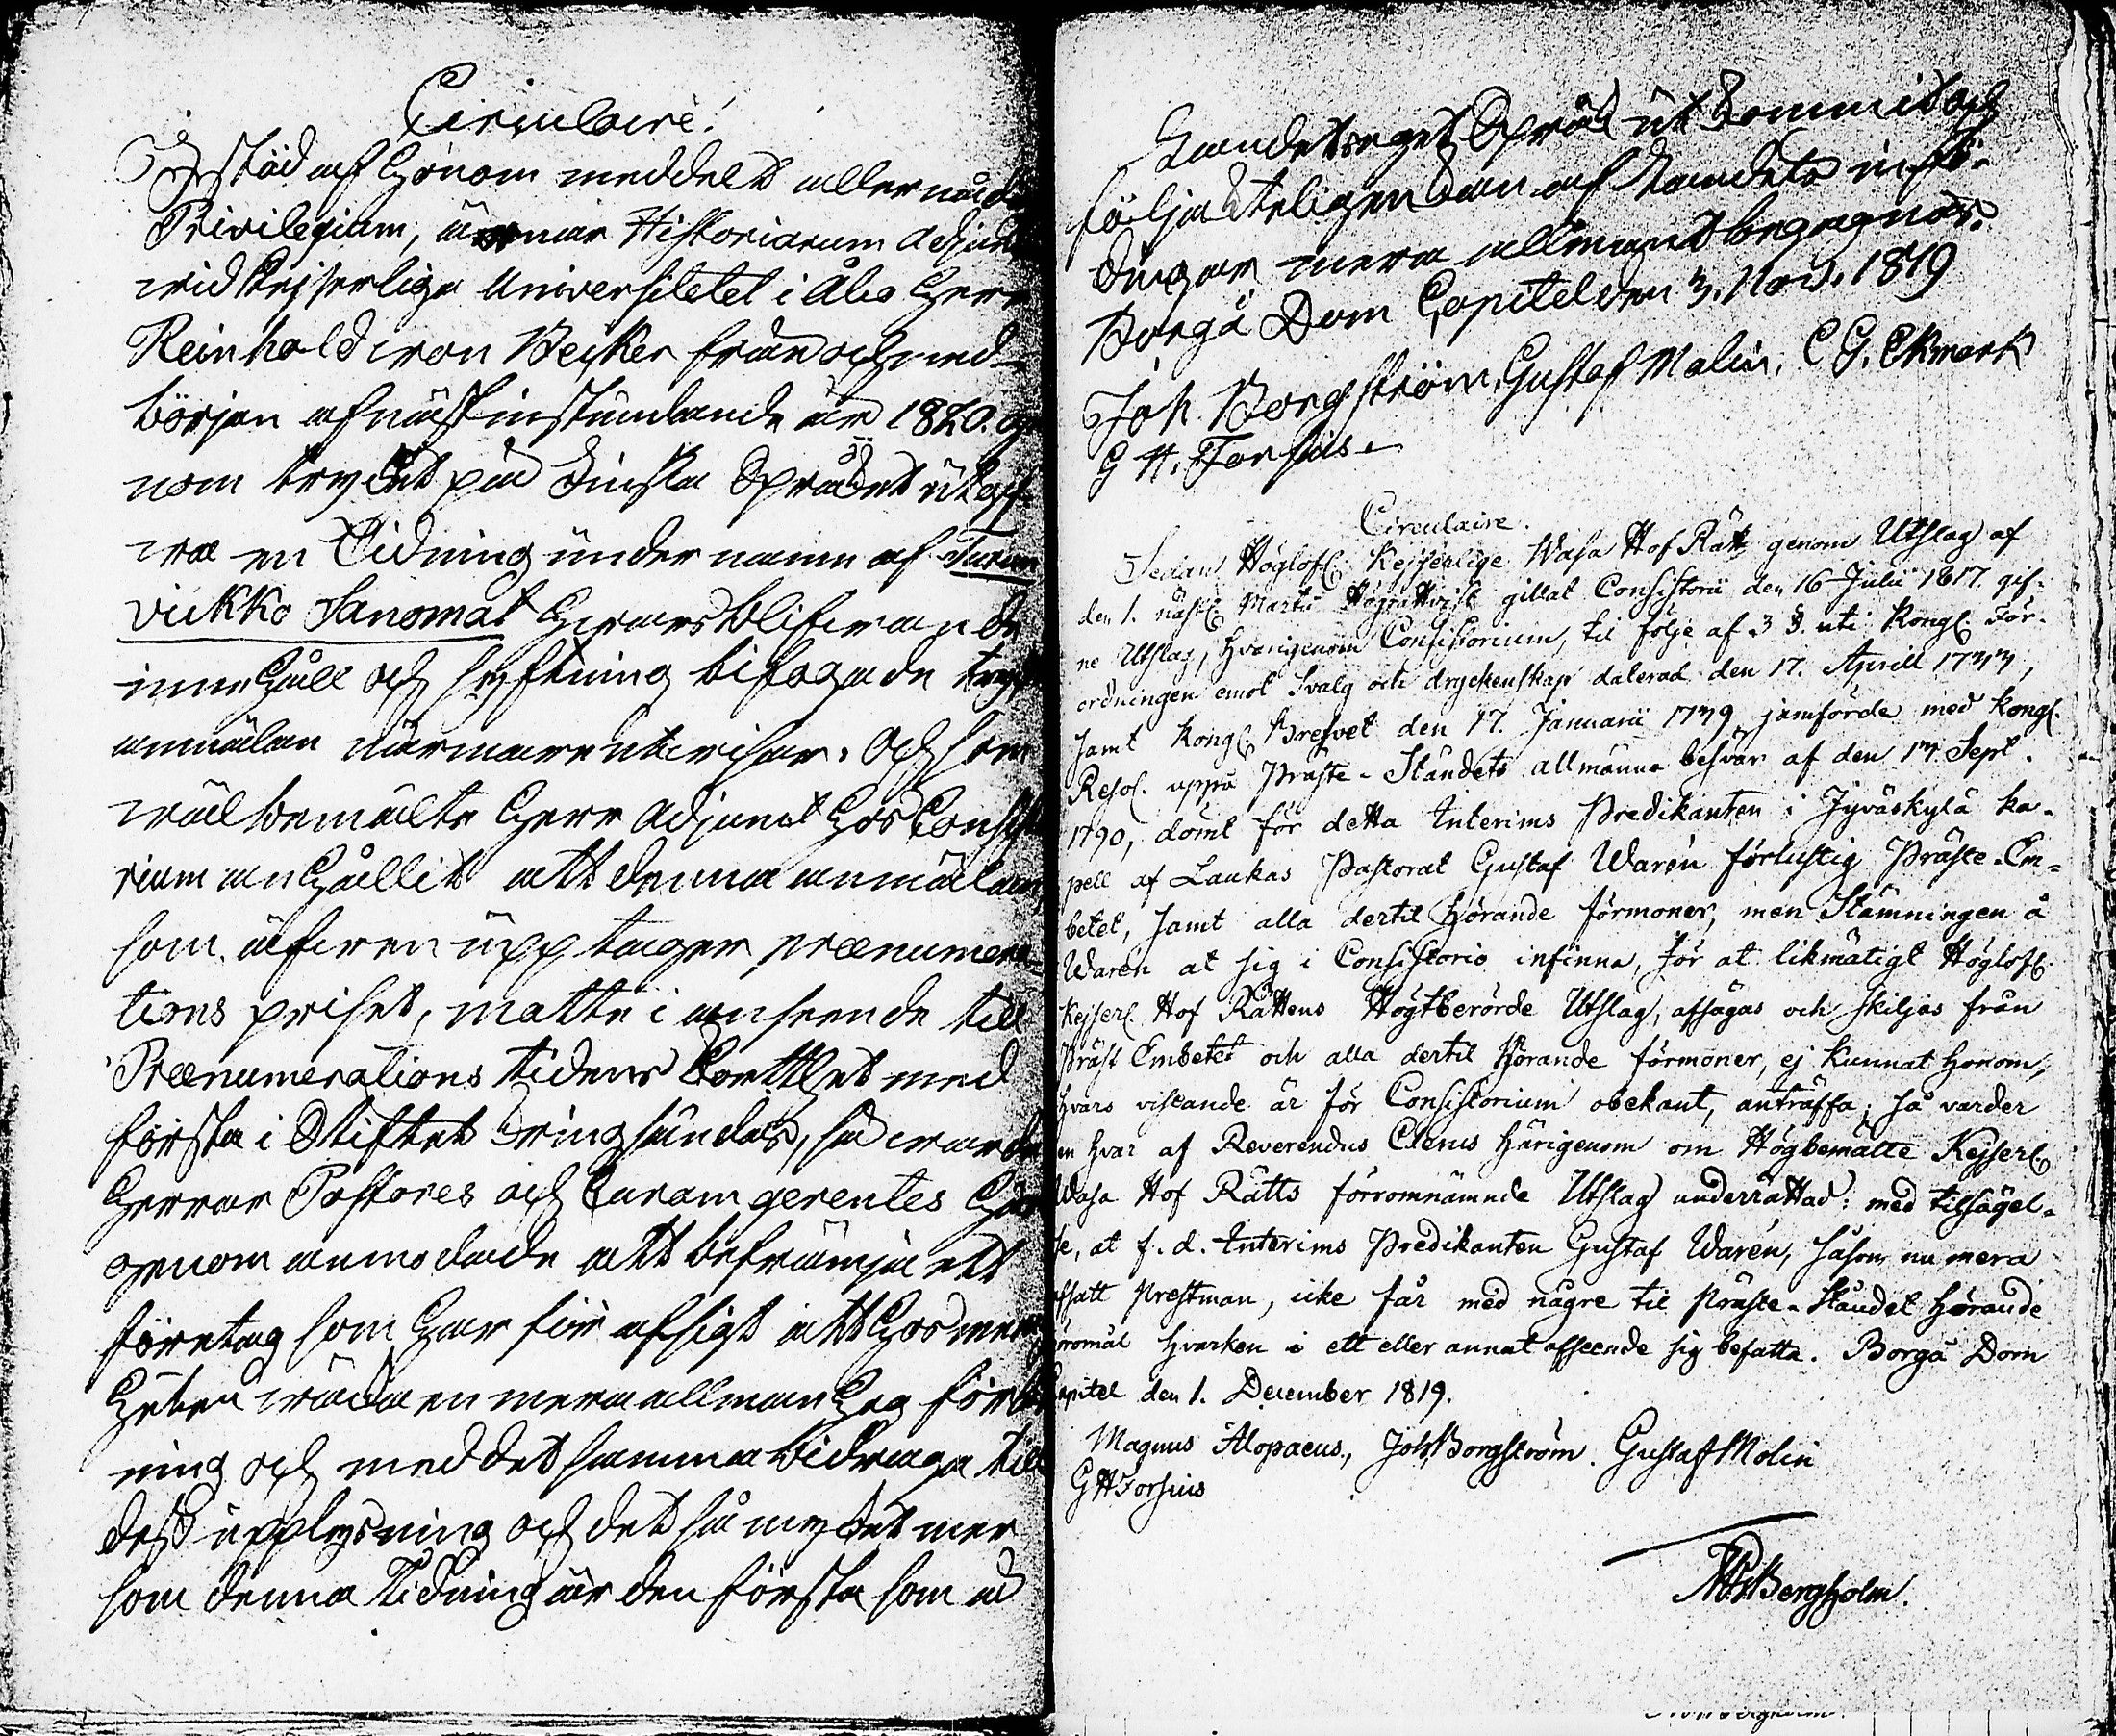 Circulaire!
I stöd af honom meddelt allernåd
Privilegium, ärnar Historiarum Adjunct
wid Kejserliga Universitetet i Åbo Herr
Reinhold von Becker från och med
början af nästinstundande år 1820. ge
nom trycket på Finska Språket utgif
wa en Tidning under namn af Turun
viikko Sanomat hwars blifwande
innehåll och syftning bifogade tryckt
anmälan närmare utwisar. Och som
wälbemälte Herr Adjunct hos Consisto
rium anhållit att denna anmälan,
som äfwen upptager prænumera-
tions priset, måtte i anseende till
Prænumerations tidens korthet med
första i Stiftet kringsändas, så warde
Herrar Pastores och Curam gerentes här
genom anmodade att befrämja ett
företag som har för afsigt att hos men
heten wäcka en mera allmän håg för läs
ning och med det samma bidraga till
dess upplysning och det så mycket mer
som denna Tidning är den första som å
Landets eget Språk utkommit och
följakteligen kan af Landets inföd-
ingar mera allmänt begagnas.
Borgå Dom Capitel den 3. Nov. 1819
Joh. Borgström, Gustaf Molin, C G. Ekmark
G H. Forsius.
Circulaire.
Sedan Höglofl. Kejserlige Wasa Hof Rätt genom Utslag af
den 1. nästl. Martii Högrättvist gillat Consistorii den 16 Julii 1817. gif-
ne Utslag, hvarigenom Consistorium, til följe af 3 §. uti Kongl. För-
ordningen emot Svalg och dryckenskap daterad den 17. Aprill 1733,
samt Kongl. Brefvet den 17. Januarii 1739 jämförde med Kongl.
Resol. uppå Präste-Ståndets allmänna besvär af den 17. Sept.
1790, dömt för detta Interims Predikanten i Jyväskylä ka-
pell af Laukas Pastorat Gustaf Warén förlustig Präste-Em-
betet, samt alla dertil hörande förmoner, men Stämningen å
Warén at sig i Consistorio infinna, för at likmätigt Höglofl.
Kejserl. Hof Rättens Högtberörde Utslag, afsägas och skiljas från
Präst Embetet och alla dertil hörande förmoner, ej kunnat honom,
hvars vistande är för Consistorium obekant, anträffa; så varder
en hvar af Reverendus Clerus härigenom om Högbemälte Kejserl.
Wasa Hof Rätts förromnämnde Utslag underrättad: med tilsägel-
se, at f. d. Interims Predikanten Gustaf Warén, såsom nu mera
afsatt Prestman, icke får med någre til Präste-Ståndet hörande
göromål hvarken i ett eller annat afseende sig befatta. Borgå Dom
Capitel den 1. December 1819.
Magnus Alopaeus., Joh. Borgström. Gustaf Molin
G H Forsius
Bergholm.